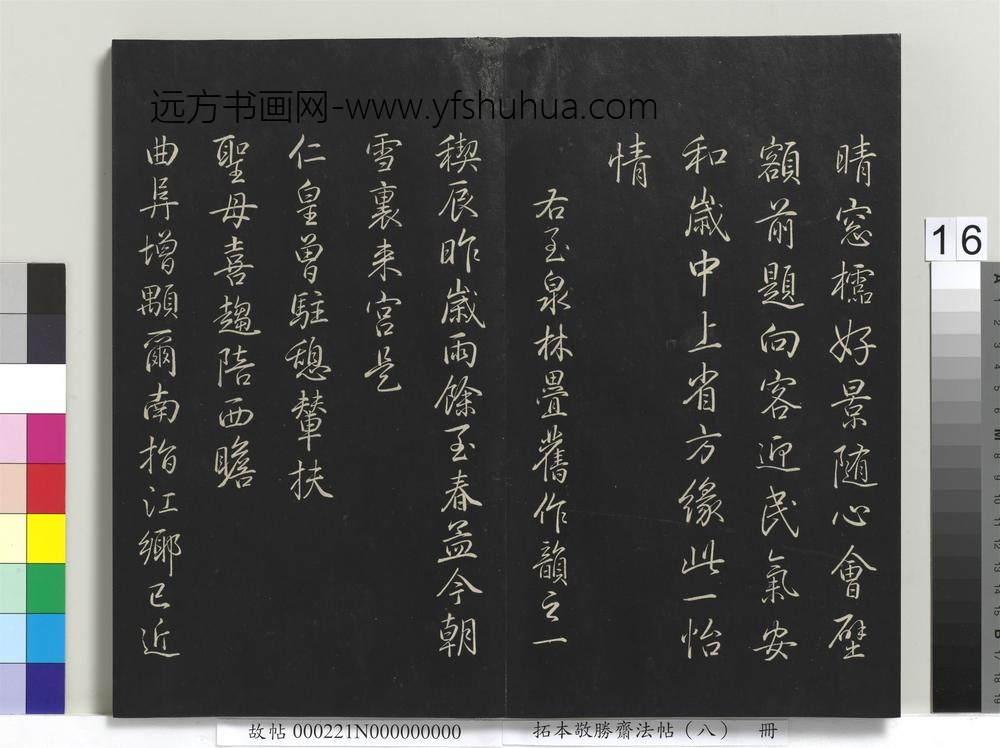 远方书画网-www.yfshuhua.com
晴窓檽好景随心會壁
額前題向客迎民氣安
和嵗中上省方緣此一怡
情
右至泉林疊舊作韻之一
稧辰昨嵗雨餘至春孟今朝
雪裏来宮是
仁皇曽駐憩輦扶
聖母喜趨陪西瞻
曲阜增顒爾南指江鄉已近
16
故帖 000221N000000000
拓本敬勝齋法帖（八） 冊